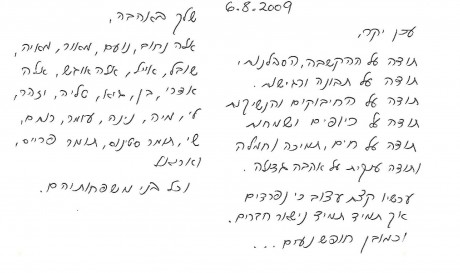 6.8.2009
ענן יקר,
תודה על ההקשבה, הסבלנות,
תודה על תבונה ורגישות.
תודה על החיבוקים והנשיקות
תודה על כיופים ושמחות
תודה על חיים, תמיכה וחמלה
ותודה ענקית על אהבה גדולה.
עכשיו קצת עצוב כי נפרדים
אך תמיד תמיד נישאר חברים.
וכמובן חופש נעים...
שלך באהבה,
אלה נחום, נועם, מאור, מאיה,
שובל, אייל, אלה אובש, אלה
אדרי, בן, גיא, טליה, יזהר,
לי, מיה, נינה, עומר, רותם,
שי, תומר סטינוס, תומר פרייס,
ואוריאל
וכל בני משפחותיהם.